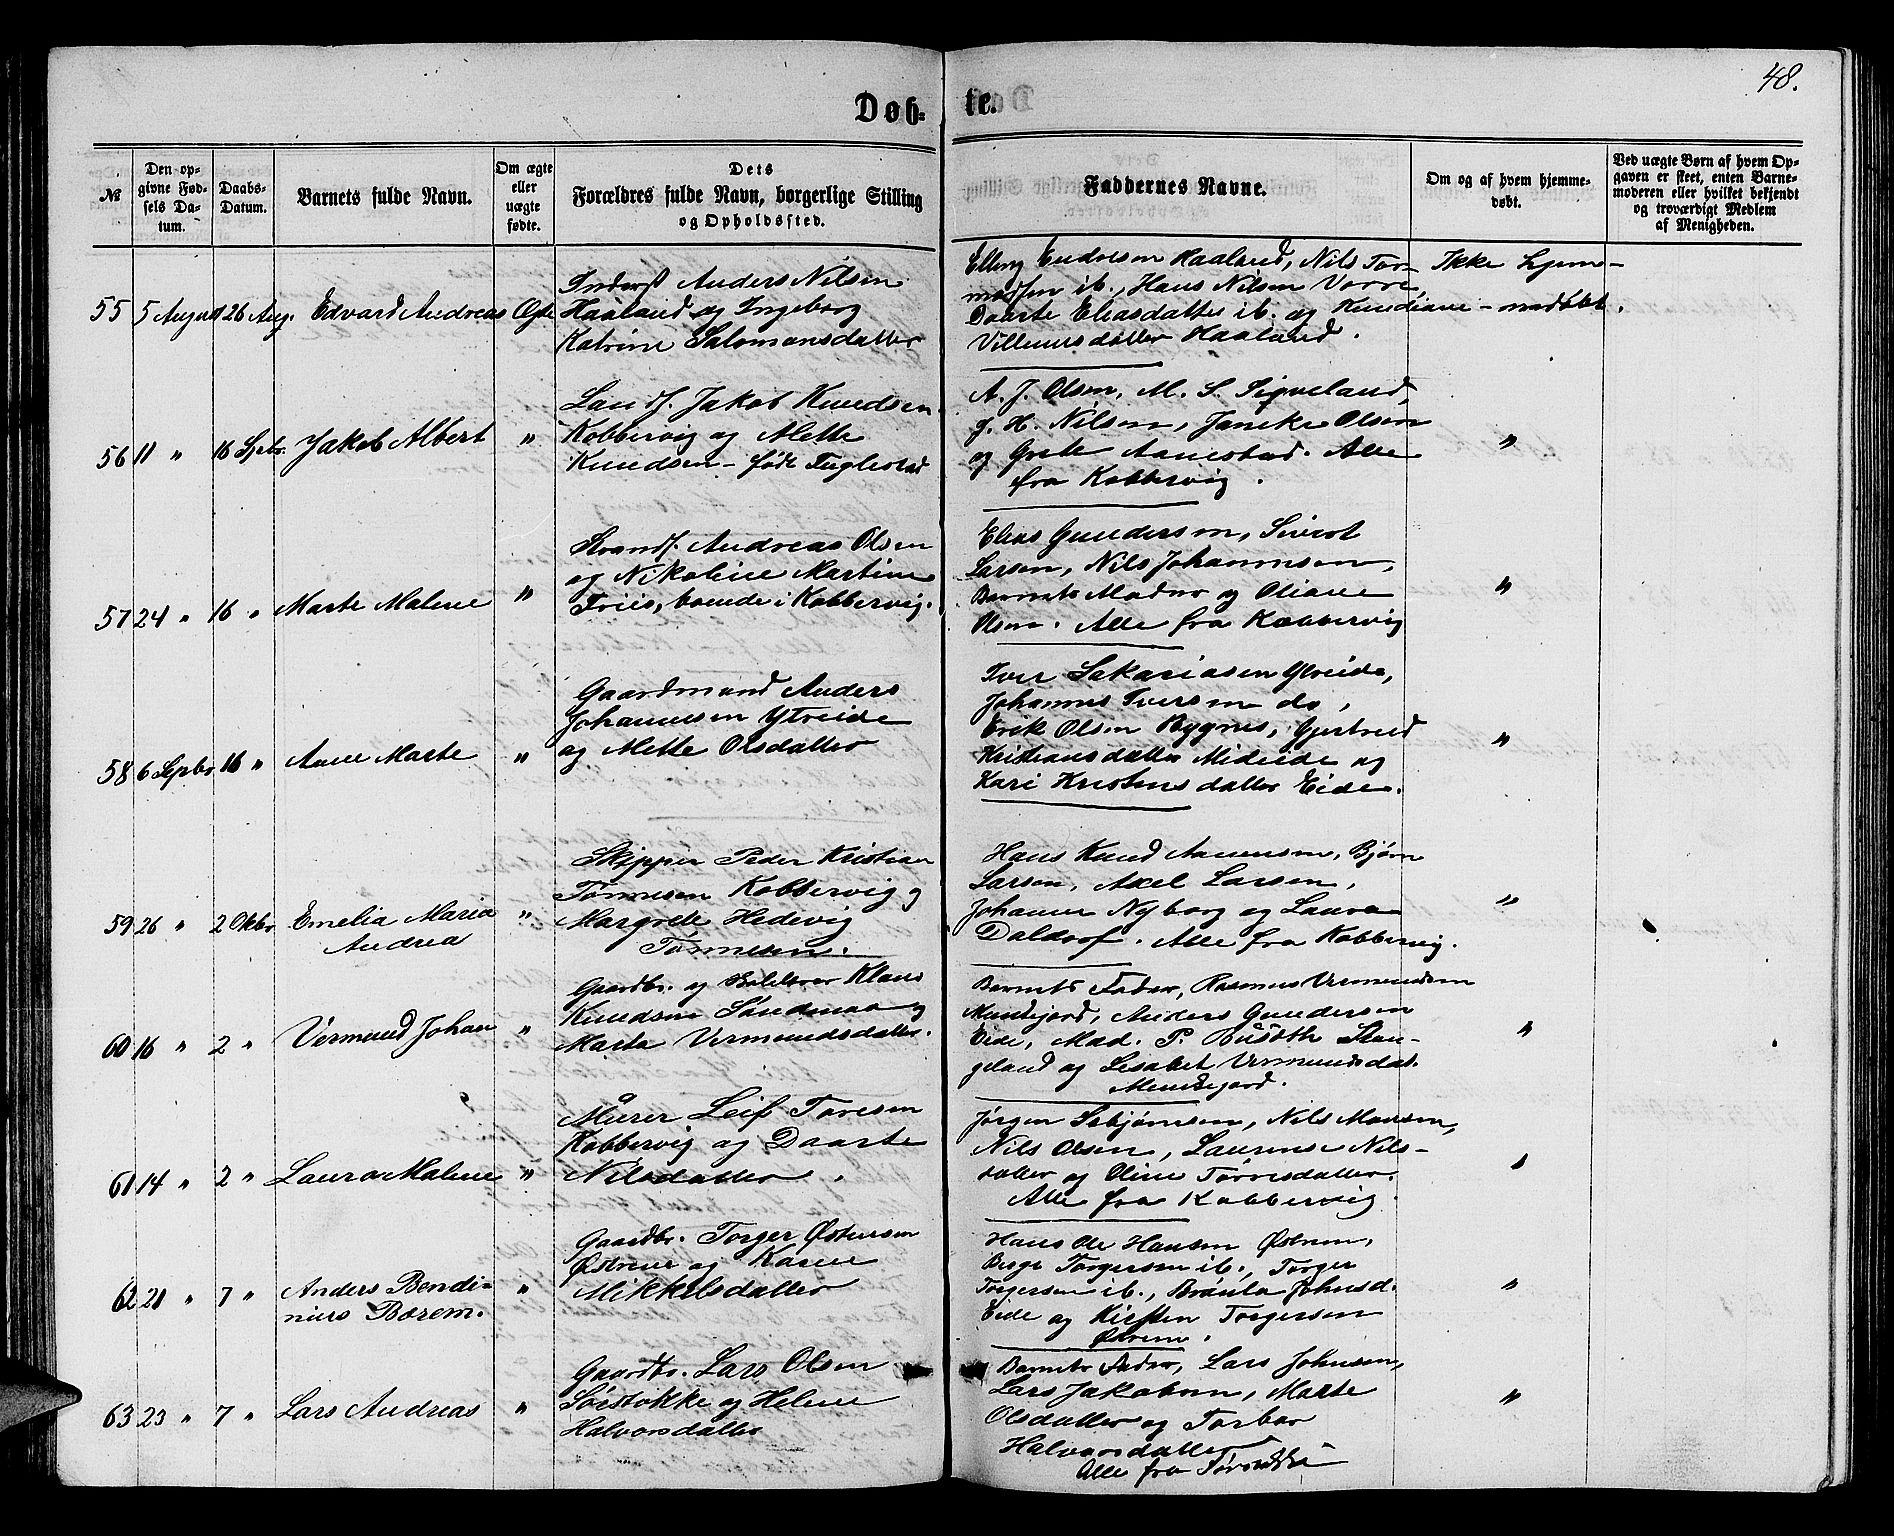 48.
Døb-te.
№
Den op-
givne Fød-
sels Da-
tum.
Daabs-
Datum.
Barnets fulde Navn.
Om ægte
eller
uægte
fødte.
Dets
Forældres fulde Navn, borgerlige Stilling
og Opholdssted.
Faddernes Navne.
Om og af hvem hjemme-
døbt.
Ved uægte Børn af hvem Op-
gaven er skeet, enten Barne-
moderen eller hvilket bekjendt
og troværdigt Medlem
af Menigheden.
55 5 August 26 Aug. Edvard Andreas Ægte
Inderst Anders Nilsen
Haaland og Ingeborg
Katrine Salomonsdatter
Elling Endresen Haaland, Nils Tor-
modsen ib., Hans Nilsen Vorre,
Daarte Eliasdatter ib. og Kundiane
Villumsdatter Haaland.
Ikke hjem-
medøbt.
56 11 " 16 Spbr. Jakob Albert "
Landh. Jakob Knudsen
Kobbervig og Mette
Knudsen - født Fuglestad
A. J. Olsen, M. S. Sigveland,
J. H. Nilsen, Janike Olsen
og Grete Aanestad. Alle
fra Kobbervig.
"
57 24 " 16 " Marte Malene "
Strands. Andreas Olsen
og Nikoline Martine
Friis, boende i Kobbervig.
Elias Gundersen, Sivert
Larsen, Nils Johannesen,
Barnets Moder og Oliane
Olsen. Alle fra Kobbervig
"
58 6 Septbr 16 " Anne Marte "
Gaardmand Anders
Johannesen Ytreide
og Mette Olsdatter
Iver Sakariasen Ytreide,
Johannes Iversen do,
Erik Olsen Bygnes, Gjertrud
Kristiansdatter Mideide og
Kari Kristensdatter Eide.
"
59 26 " 2 Oktbr Emelia Maria
Andrea "
Skipper Peder Kristian
Tønnesen Kobbervig og
Margrete Hedevig
Tønnesen.
Hans Knud Aanensen, Bjørn
Larsen, Axel Larsen,
Johanne Nyborg og Laura
Daldorf. Alle fra Kobbervig.
"
60 16 " 2 " Vermund Johan "
Gaardbr. og Klaus
Knudsen Sundnaa og
Marta Vermundsdatter.
Barnets Fader, Rasmus Vermundsen
Mundsjord, Anders Gundersen
Eide, Mad. P. Stan-
geland og Lisabet Vermundsdat.
Mundsjord.
"
61 14 " 2 " Laura Malene "
Murer Leif Toresen
Kobbervig og Daarte
Nilsdatter.
Jørgen Sebjørnsen, Nils Monsen,
Nils Olsen, Laurense Nils-
datter og Oline Tørresdatter.
Alle fra Kobbervig.
"
62 21 " 7 " Anders Bendi-
nius Borem. "
Gaardbr. Torger Østensen
Østrem og Karen
Mikkelsdatter
Hans Ole Hansen Østrem,
Berge Torgersen ib., Torger
Torgersen ib., Brånla Johnsd.
Eide og Kirsten Torgersen
Østrem.
"
63 23 " 7 " Lars Andreas "
Gaardbr. Lars Olsen
Sørstokke og Helene
Halvorsdatter
Barnets Fader, Lars Johnsen,
Lars Jakobsen, Marte
Olsdatter og Torbor
Halvorsdatter
Alle fra Sørstokke
"